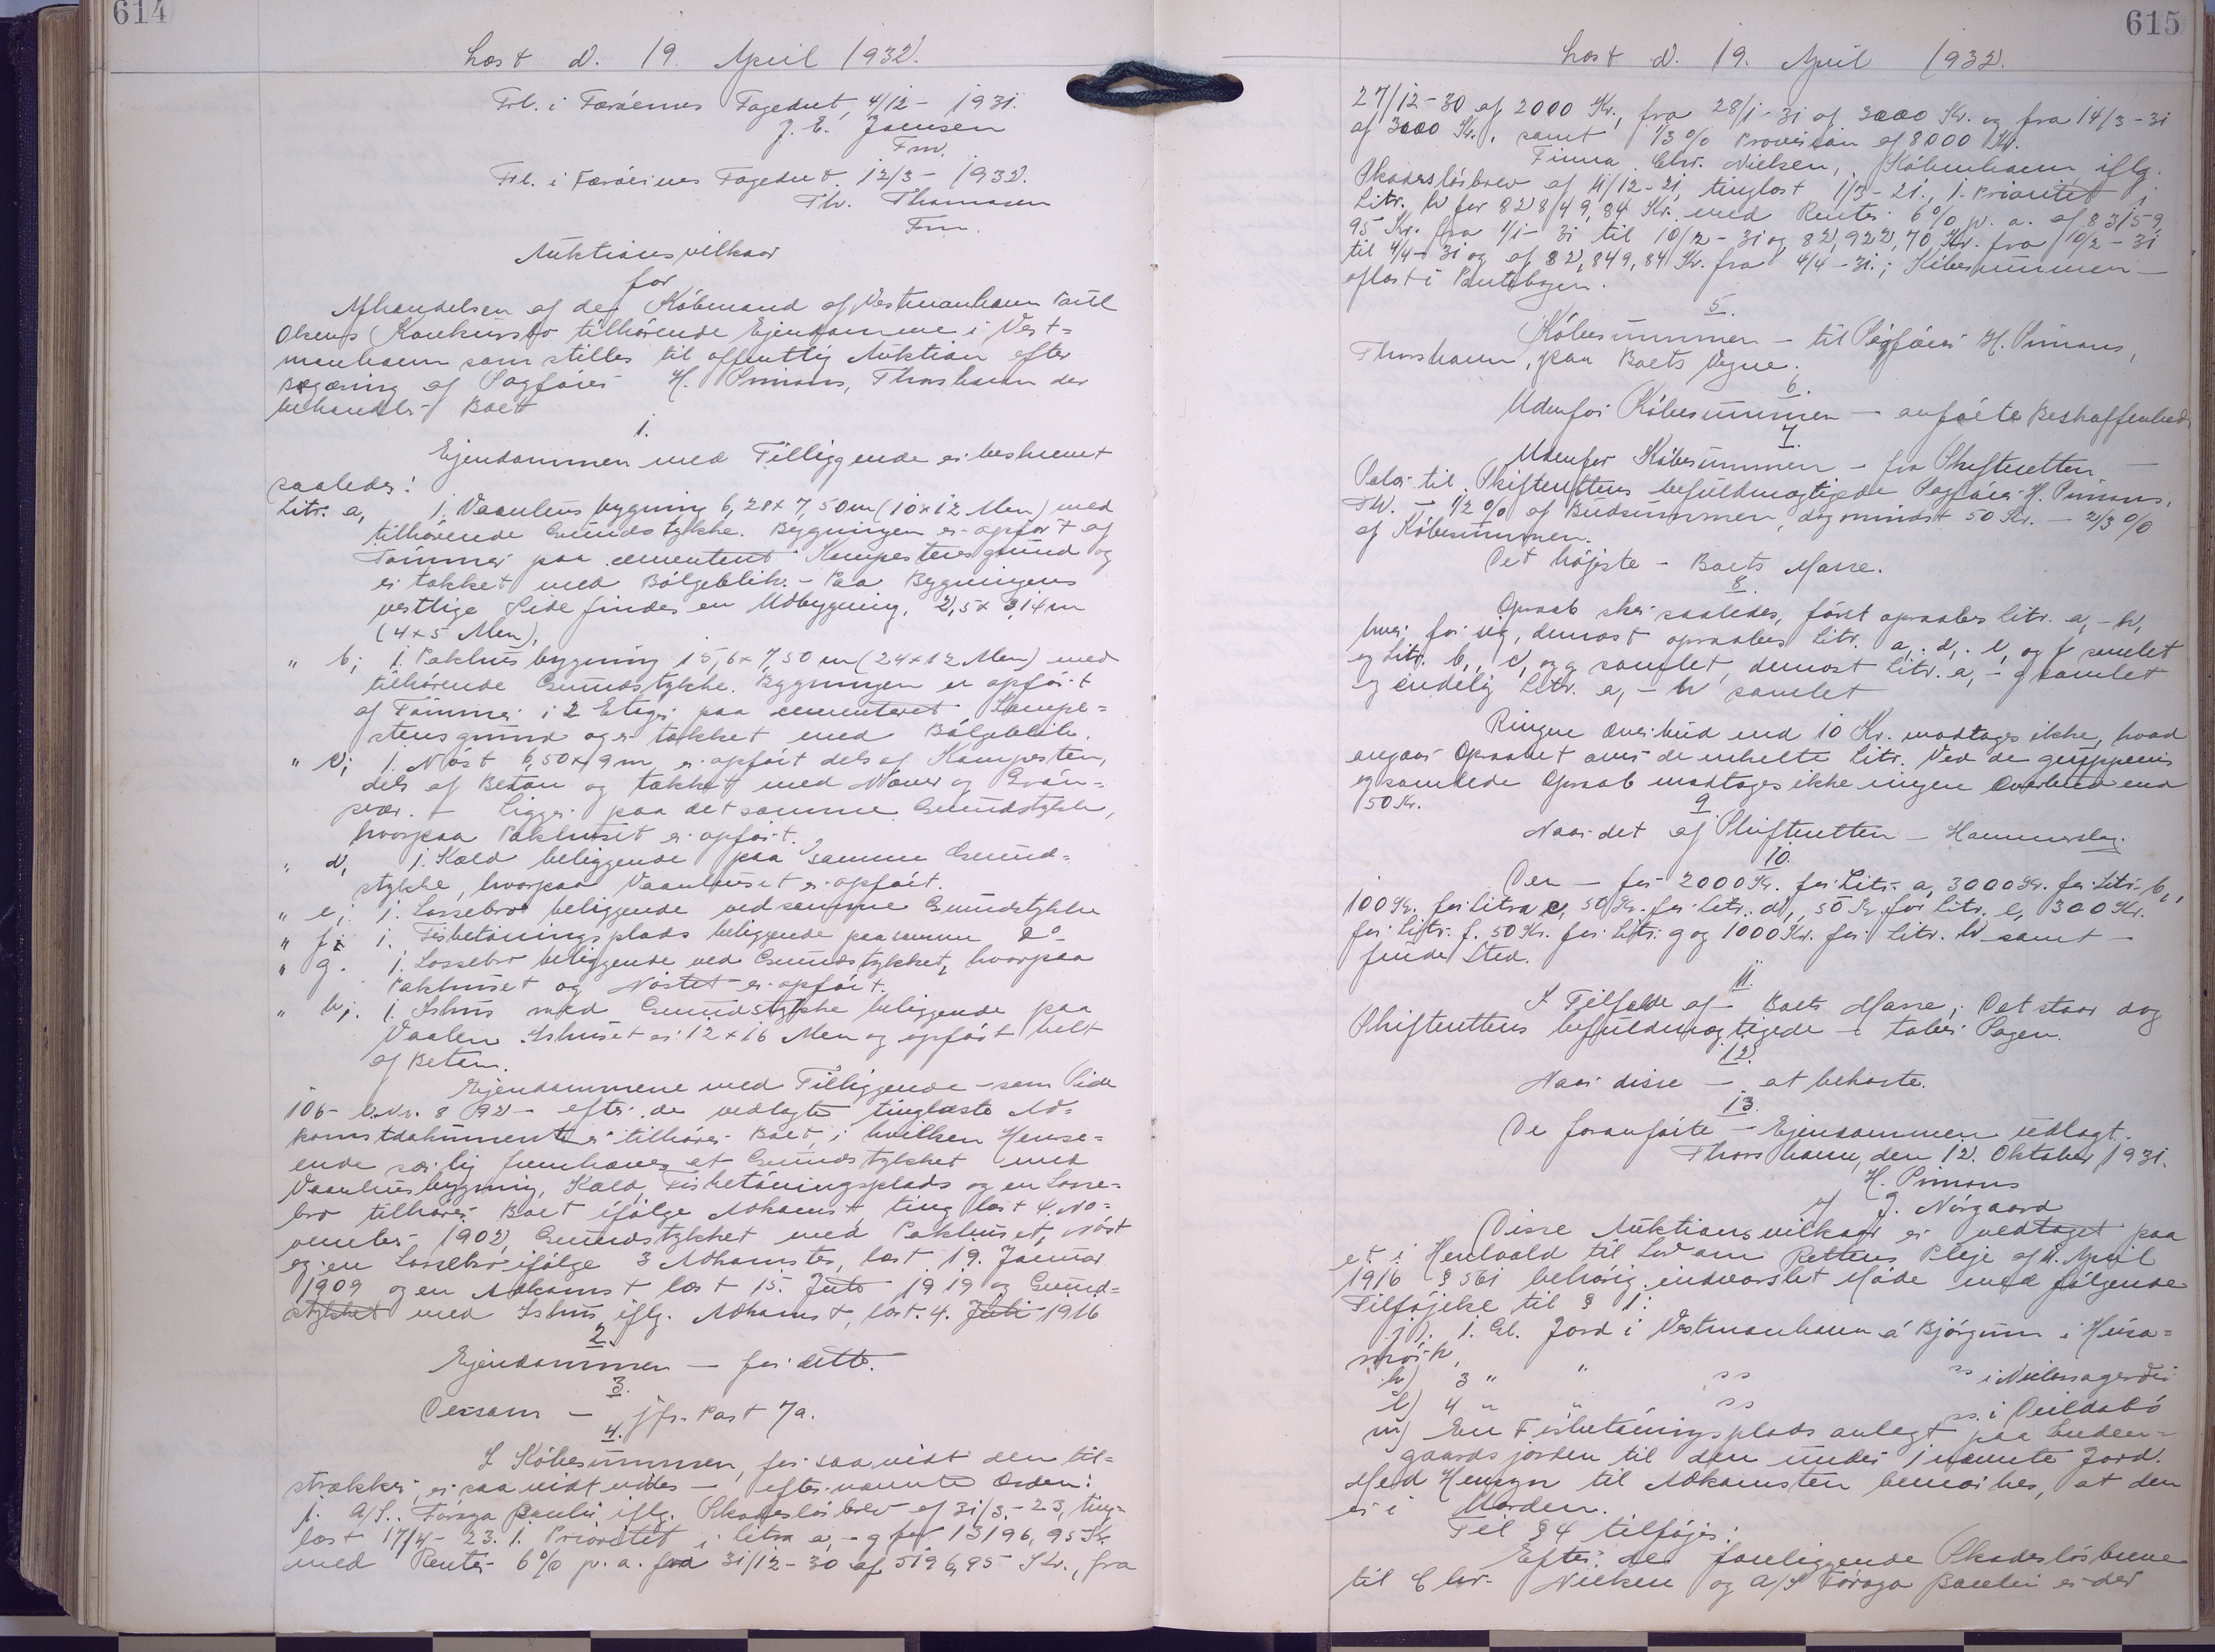 614
Læst d. 19. April 1932.
Frl. i Færøernes Fogedret, 4/12 - 1931.
J. E. Joensen
Fm.
Frl. i Færøernes Fogedret. 12/3 - 1932.
Th. Thomasen
Fm.
Auktionsvilkaar
for
Afhændelsen af de Købmand af Vestmanhavn Poul
Olsens Konkursbo tilhørende Ejendomme i Vest=
manhavn som stilles til offentlig Auktion efter
Begæring af Sagfører H. Simons, Thorshavn der
behandler Boet
1.
Ejendommen med Tilliggende er beskrevet
saaledes:
Litr. a, 1. Vaanhusbygning 6,28 x 7,50 m (10x12 Alen) med
tilhørende Grundstykke. Bygningen er opført af
Tømmer paa cementeret Kampestensgrund og
er takket med Bølgeblik. - Paa Bygningens
vestlige Side findes en Udbygning, 2,5 x 3,14 m
(4x5 Alen),
" b; 1. Pakhusbygning 15,6 x 7,50 m (24x12 Alen) med
tilhørende Grundstykke. Bygningen er opført
af Tømmer i 2 Etager paa cementeret Kampe=
stensgrund og er takket med Bølgeblik.
" c; 1. Nøst 6,50 x 9 m, er opført dels af Kampesten,
dels af Beton og takket med Næver og Grøn=
svær. - Ligger paa det samme Grundstykke,
hvorpaa Pakhuset er opført.
" d, 1. Kæld beliggende paa samme Grund=
stykke, hvorpaa Vaanhuset er opført.
" e; 1. Lossebro beliggende ved samme Grundstykke
" f; 1. Fisketørringsplads beliggende paa samme do
" g. 1. Lossebro beliggende ved Grundstykket, hvorpaa
Pakhuset og Nøstet er opført.
" h; 1. Ishus med Grundstykke beliggende paa
Vaalen. Ishuset er 12 x 16 Alen og opført helt
af Beton.
Ejendommene med Tilliggende - som Side
106 - L.Nr. 8 92 - efter de vedlagte tinglæste Ad=
komstdokumenter tilhører Boet, i hvilken Hense=
ende særlig fremhæves at Grundstykket med
Vaanhusbygning, Kæld, Fisketørringsplads og en Losse=
bro tilhører Boet ifølge Adkomst tinglæst 4. No=
vember 1902, Grundstykket med Pakhuset, Nøst
og en Lossebro ifølge 3 Adkomster, læst 19. Januar
1909 og en Adkomst læst 15. Juli 1919 og Grund=
stykket med Ishus iflg. Adkomst, læst. 4. Juli 1916
2.
Ejendommen - for dette.
3.
Dessom - jfr. Post 7a.
4.
I Købesummen, for saavidt den til=
strækker, er saavidt vides - efternævnte Orden:
1. A/S. Føroya Banki iflg. Skadesløsbrev af 31/3 - 23, ting=
læst 17/4 - 23. 1. Prioritet i litra a, - g for 13196,95 Kr.
med Renter 6% p. a. fra 31/12 - 30 af 5196,95 Kr., fra
615
Læst d. 19. April 1932.
27/12 - 30 af 2000 Kr., fra 28/1 - 31 af 3000 Kr. og fra 14/3 - 31
af 3000 Kr., samt 1/3 % Provision af 8000 Kr.
Firma Chr. Nielsen, København iflg.
Skadesløsbrev af 11/12 - 21, tinglæst 1/3 - 21., 1. Prioritet i
Litr. h for 82849,84 Kr. med Renter 6% p. a. af 83159,
95 Kr. fra 1/1 - 31 til 10/2 - 31 og 82,922,70 Kr. fra 10/2 - 31
til 4/4 - 31 og af 82,849,84 Kr. fra 4/4 - 31.; Købesummen -
aflæst i Pantebogen.
5.
Købesummen - til Sagfører H. Simons,
Thorshavn, paa Boets Vegne.
6.
Udenfor Købesummen - anførte Beskaffenhed
7.
Udenfor Købesummen - fra Skifteretten -
Salær til Skifterettens befuldmægtigede Sagfører H. Simons,
Thv. - 1/2 % af Budsummen, dog mindst 50 Kr. - 2/3 %
af Købesummen.
Det højeste - Boets Masse.
8.
Opraab sker saaledes, først opraabes litr. a, - h,
hver for sig, dernæst opraabes Litr. a,. d,. e, og f samlet
og Litr. b, c, og g samlet, dernæst Litr. a, - g samlet
og endelig Litr. a, - h samlet
Ringere Overbud end 10 Kr. modtages ikke, hvad
angaar Opraabet over de enkelte Litr. Ved de gruppevis
og samlede Opraab modtages ikke ringere Overbud end
50 Kr.
9
Naar det af Skifteretten - Hammerslag.
10.
Den - for 2000 Kr. for Litr. a, 3000 Kr. for Litr. b,
100 Kr. for litra c, 50 Kr. for Litr. d, 50 Kr for Litr. e, 300 Kr.
for Litr. f. 50 Kr. for Litr. g og 1000 Kr. for Litr. h samt -
finde Sted.
11.
I Tilfælde af - Boets Masse; Det staar dog
Skifterettens befuldmægtigede - taber Sagen.
12.
Naar disse - at bekoste.
13.
De foranførte - Ejendommen udlagt.
Thorshavn, den 12. Oktober 1931.
H. Simons
J. Nørgaard
Disse Auktionsvilkaar er vedtaget paa
et i Henhold til Lov om Rettens Pleje af 11. April
1916 § 561 behørig indvarslet Møde med følgende
Tilføjelse til § 1:
j). 1. Gl. Jord i Vestmanhavn á Bjørgum i Húsa=
mørk,
k) 3 " " ss ss i Nielsagerdi
l) 4 " " ss ss. i Quildabó
m) En Fisketørringsplads anlagt paa Enden=
gaardsjorden til den under j nævnte Jord.
Med Hensyn til Adkomsten bemærkes, at den
er i Orden.
Til § 4 tilføjes:
Efter de foreliggende Skadesløsbreve
til Chr. Nielsen og A/S Føroya Banki er der